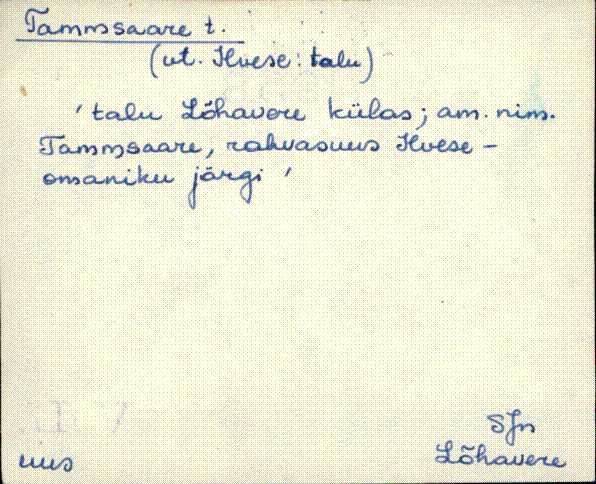 Tammsaare t.
(vt. Ilvese: talu)
' talu Lõhavere külas; am. nim.
Tammsaare, rahvasuus Ilvese -
omaniku järgi '
SJn
uus
Lõhavere